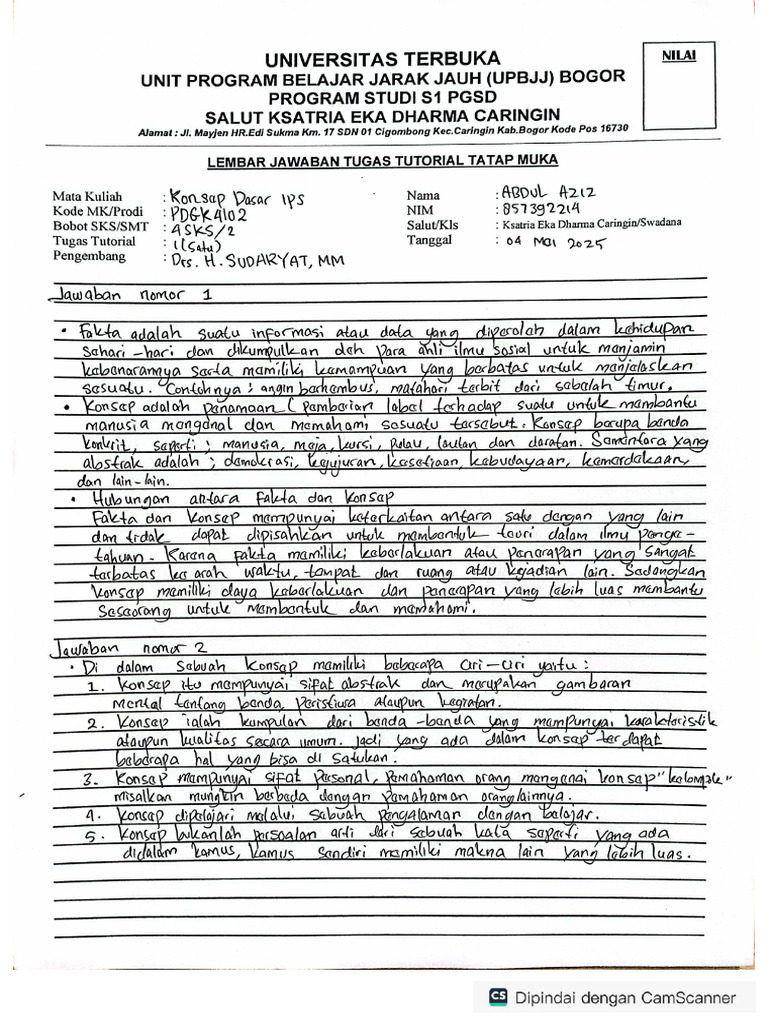 UNIVERSITAS TERBUKA
UNIT PROGRAM BELAJAR JARAK JAUH (UPBJJ) BOGOR
PROGRAM STUDI S1 PGSD
SALUT KSATRIA EKA DHARMA CARINGIN
Alamat : Jl. Mayjen HR.Edi Sukma Km. 17 SDN 01 Cigombong Kec.Caringin Kab.Bogor Kode Pos 16730
NILAI
LEMBAR JAWABAN TUGAS TUTORIAL TATAP MUKA
Mata Kuliah : Konsep Dasar IPS
Kode MK/Prodi : PDGK4102
Bobot SKS/SMT : 4SKS/2
Tugas Tutorial : 1 (satu)
Pengembang : Drs. H. SUDARYAT, MM
Nama : ABDUL AZIZ
NIM : 857392214
Salut/Kls : Ksatria Eka Dharma Caringin/Swadana
Tanggal : 04 MEI 2025
Jawaban nomor 1
• Fakta adalah suatu informasi atau data yang diperoleh dalam kehidupan
sehari-hari dan dikumpulkan oleh para ahli ilmu sosial untuk menjamin
kebenarannya serta memiliki kemampuan yang berbatas untuk menjelaskan
sesuatu. Contohnya : angin berhembus, matahari terbit dari sebelah timur.
• Konsep adalah penamaan (pemberian label terhadap suatu untuk membantu
manusia mengenal dan memahami sesuatu tersebut. Konsep berupa benda
konkrit, seperti ; manusia, meja, kursi, pulau, lautan dan daratan. Sementara yang
abstrak adalah ; demokrasi, kejujuran, kesetiaan, kebudayaan, kemerdekaan,
dan lain-lain.
• Hubungan antara fakta dan konsep
Fakta dan konsep mempunyai keterkaitan antara satu dengan yang lain
dan tidak dapat dipisahkan untuk membentuk teori dalam ilmu penge-
tahuan. Karena fakta memiliki keberlakuan atau penerapan yang sangat
terbatas ke arah waktu, tempat dan ruang atau kejadian lain. Sedangkan
konsep memiliki daya keberlakuan dan penerapan yang lebih luas membantu
seseorang untuk membentuk dan memahami.
Jawaban nomor 2
• Di dalam sebuah konsep memiliki beberapa ciri-ciri yaitu :
1. Konsep itu mempunyai sifat abstrak dan merupakan gambaran
mental tentang benda, peristiwa ataupun kegiatan.
2. Konsep ialah kumpulan dari benda-benda yang mempunyai karakteristik
ataupun kualitas secara umum. jadi yang ada dalam konsep terdapat
beberapa hal yang bisa di satukan.
3. Konsep mempunyai sifat personal, pemahaman orang mengenai konsep "kelompok"
misalkan mungkin berbeda dengan pemahaman orang lainnya.
4. Konsep dipelajari melalui sebuah pengalaman dengan belajar.
5. Konsep bukanlah persoalan arti dari sebuah kata seperti yang ada
didalam kamus, kamus sendiri memiliki makna lain yang lebih luas.
CS Dipindai dengan CamScanner